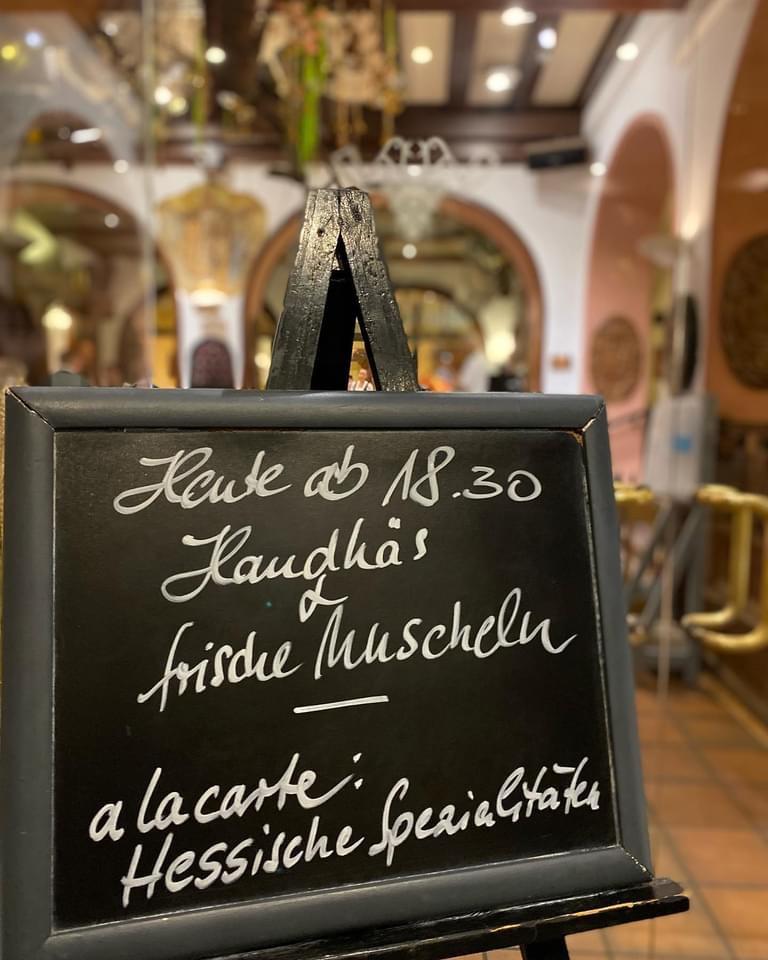 Heute ab 18.30
Handkäs
&
frische Muscheln
a la carte:
Hessische Spezialitäten